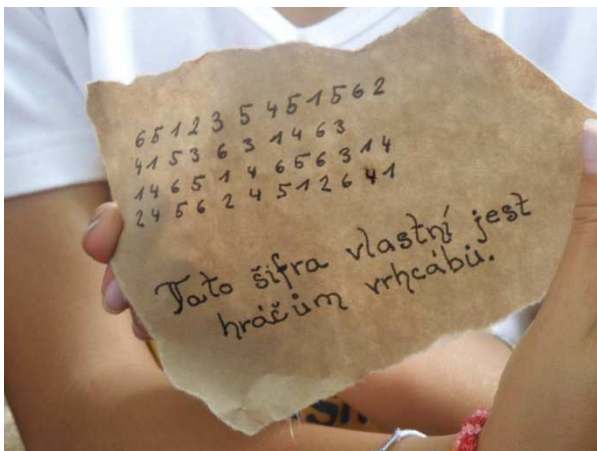 6 5 1 2 3 5 4 5 1 5 6 2
4 1 5 3 6 3 1 4 6 3
1 4 6 5 1 4 6 5 6 3 1 4
2 4 5 6 2 4 5 1 2 6 4 1
Tato šifra vlastní jest
hráčům vrhcábů.